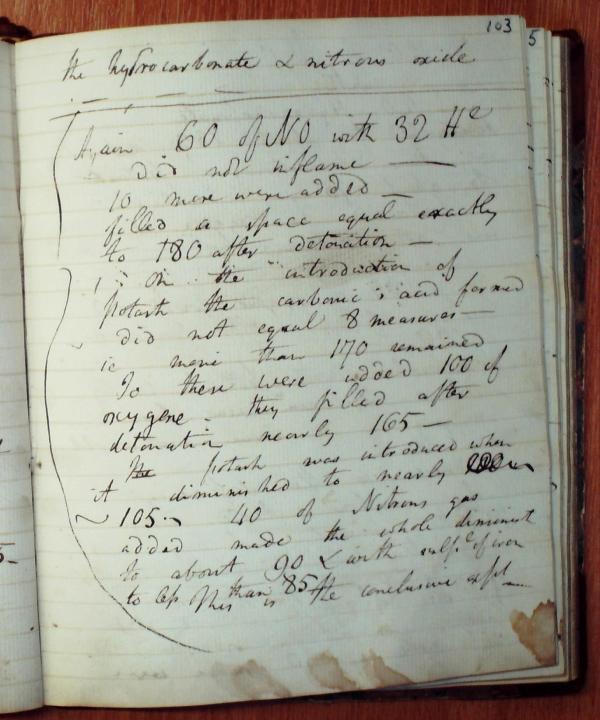 103
5
the hydrocarbonate & nitrous oxide
Again 60 of NO with 32 He
did not inflame —
10 more were added —
filled a space equal exactly
to 180 after detonation —
on the introduction of
potash the carbonic acid formed
did not equal 8 measures —
ie more than 170 remained
To these were added 100 of
oxygene - they filled after
detonation nearly 165 —
The potash was introduced when
it diminished to nearly
~ 105 - 40 of Nitrous gas
added made the whole diminish
to about 90 & with sulpe of iron
to less than 85 This is the conclusive expt —
5-